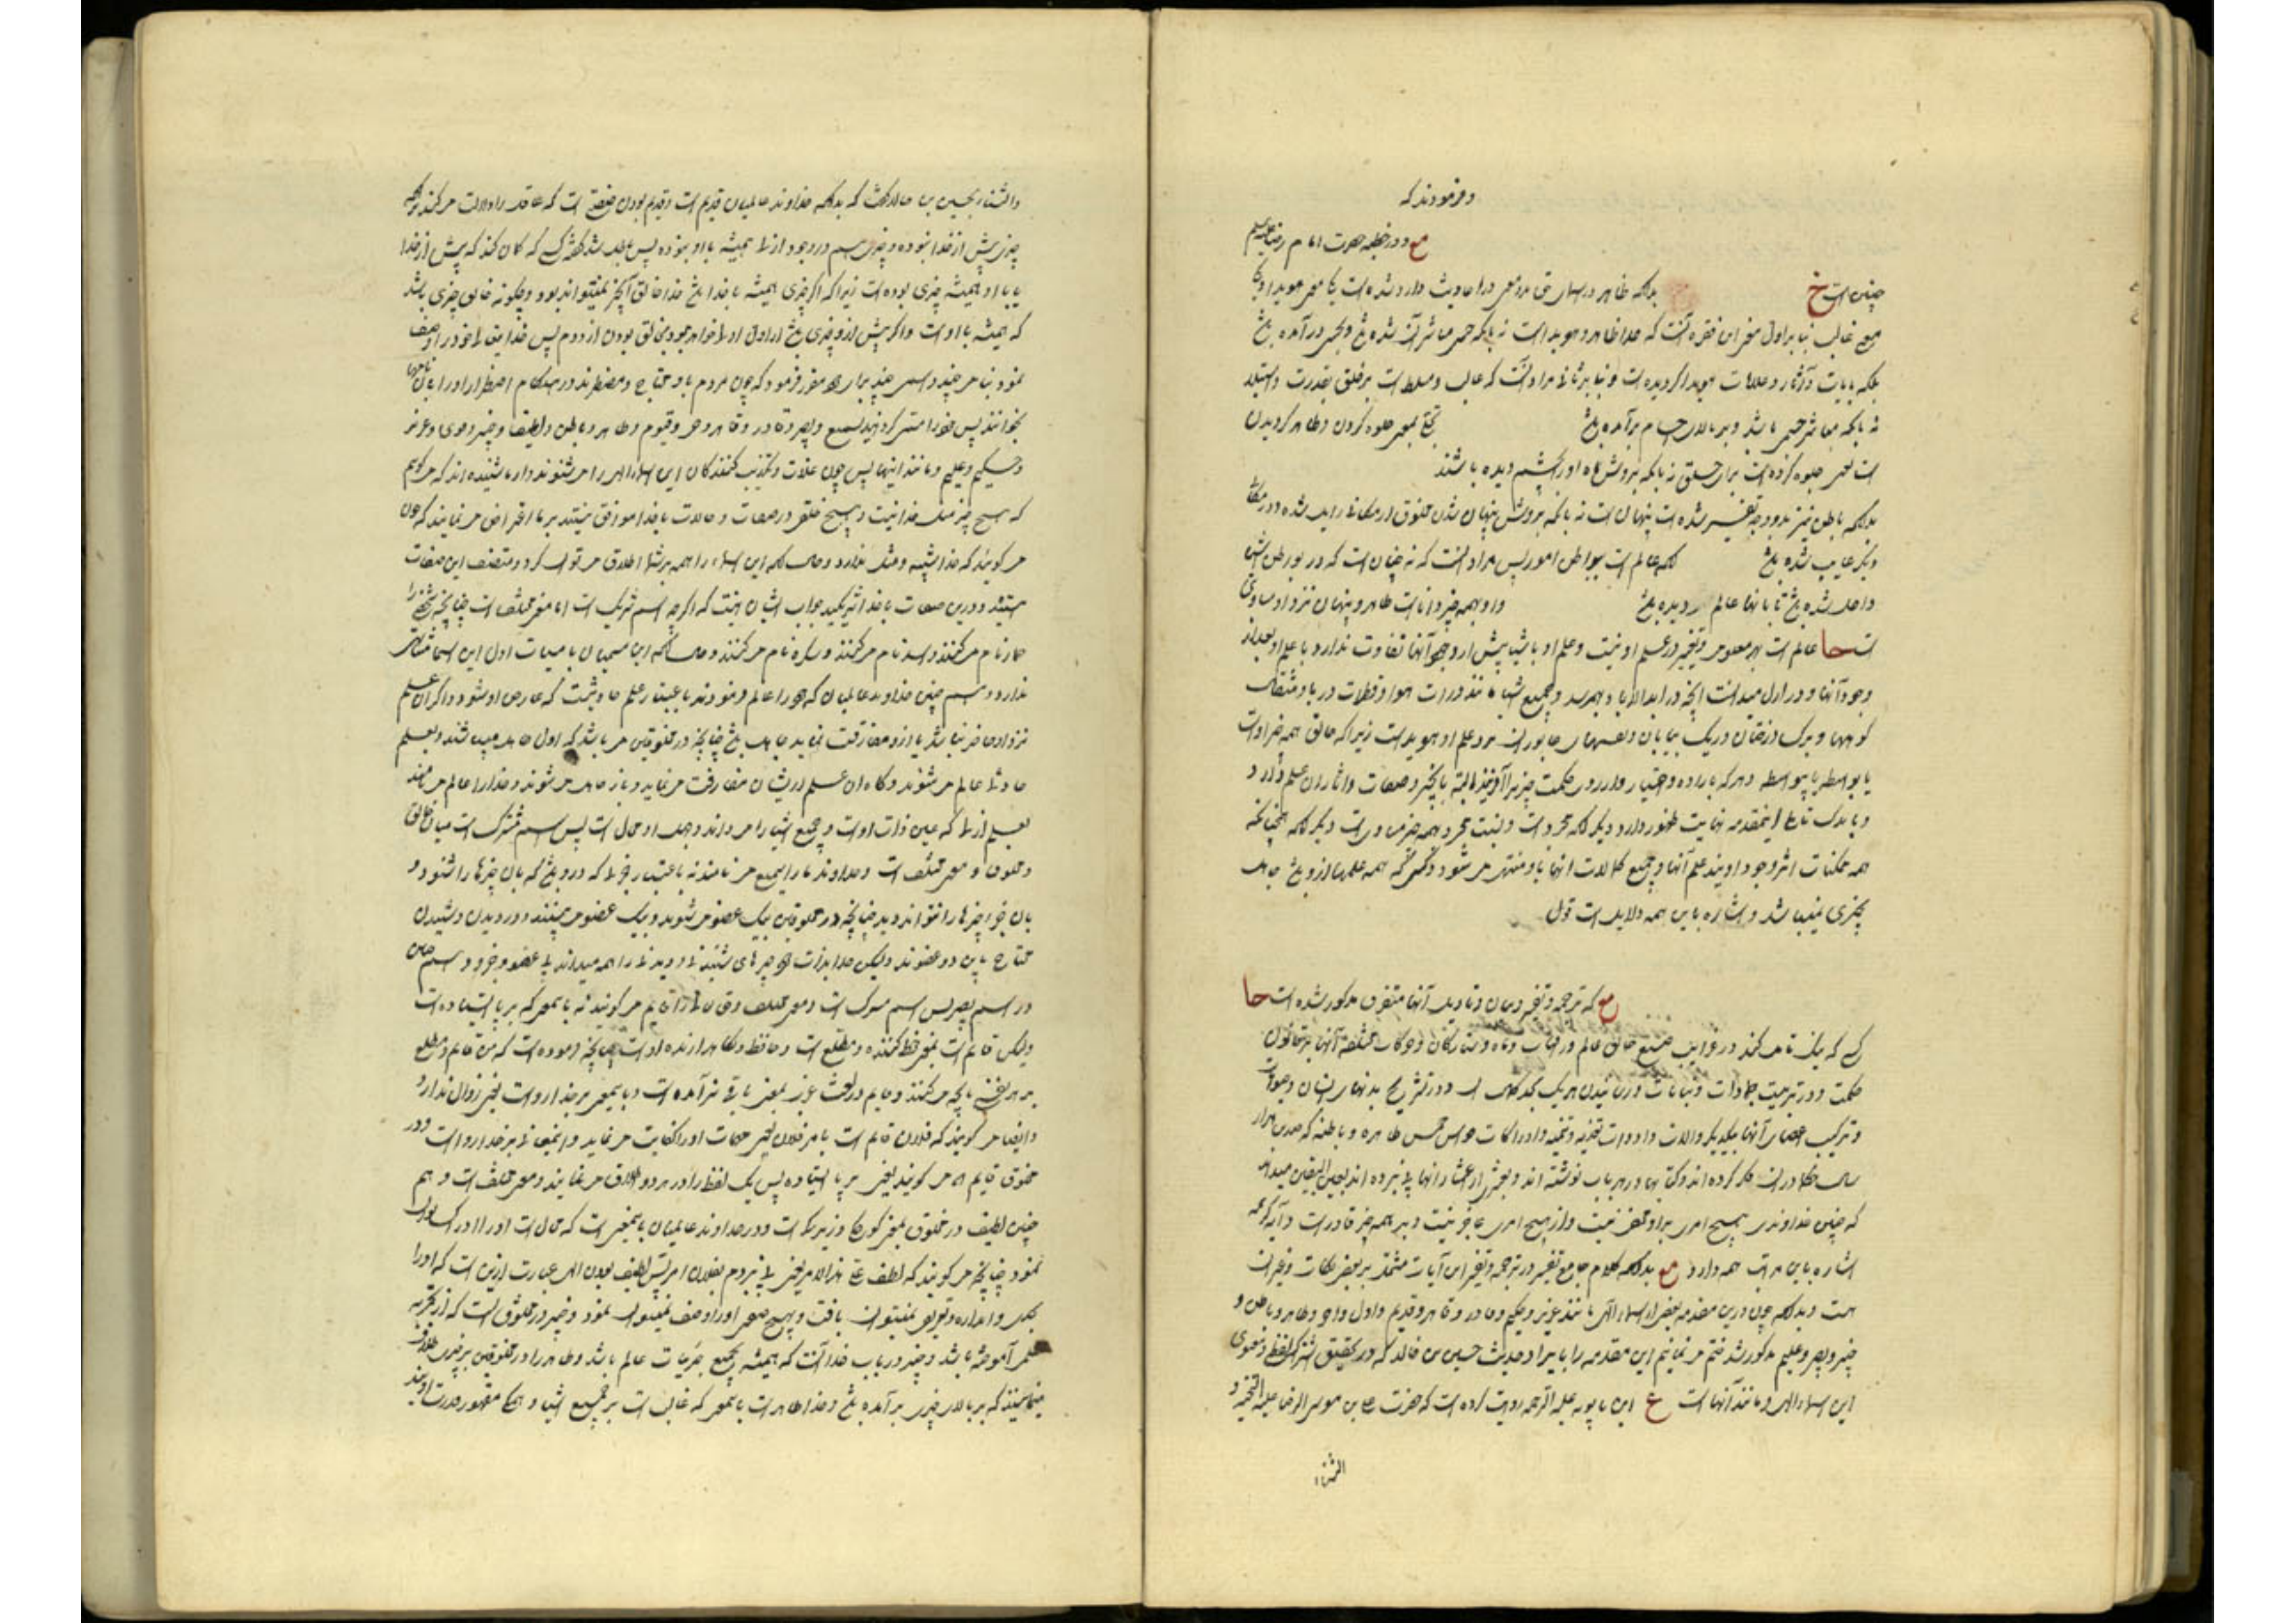 و فرمودند که
مع و در خطبه حضرت امام رضا علیه السلم
چنین است خ بدانکه ظاهر در اسمای حق بدو معنی در احادیث وارد شده است یکی بمعنی هویدا و یکی
بمعنی غالب بنا بر اول معنی این فقره آنست که خدا ظاهر و هویدا است نه بانکه حس مباشر آن شده باشد و بحس درآمده باشد
بلکه بایات و آثار و علامات هویدا گردیده است و بنا بر ثانی مراد آنست که غالب و مسلط است بر خلق بقدرت و استیلا
نه بانکه مباشر جسمی باشد و بر بالای اجسام برآمده باشد تجلی بمعنی جلوه کردن و ظاهر گردیدن
است یعنی جلوه کرده است برای خلق نه بانکه بروش ماه او را بچشم دیده باشند
بدانکه باطن نیز بدو وجه تفسیر شده است پنهان است نه بانکه بروش پنهان شدن مخلوق از مکانی زایل شده و در مکان
دیگر غایب شده باشد بلکه عالم است ببواطن امور پس مراد آنست که نه چنان است که در بواطن اشیا
داخل شده باشد تا بانها عالم گردیده باشد و او بهمه چیز داناست ظاهر و پنهان نزد او مساوی
است حا عالم است بهر معلومی و تغییر در علم او نیست و علم او باشیا پیش از وجود آنها تفاوت ندارد با علم او بعد از
وجود آنها و در ازل میدانست آنچه در ابد الاباد بهم رسد و جمیع اشیا مانند ذرات هوا و قطرات دریا و مثقال
کوهها و برگ درختان و ریگ بیابان و نفسهای جانوران نزد علم او هویداست زیرا که خالق همه چیز اوست
یا بواسطه یا بیواسطه و هر که باراده و اختیار و از روی حکمت چیزی را آفریند البته بانچیز و صفات و آثار آن علم دارد و
و باندک تاملی اینمقدمه نهایت ظهور دارد و دیگر آنکه مجرد است و نسبت مجرد بهمه چیز مساوی است دیگر آنکه همچنانکه
همه ممکنات اثر وجود اویند علم آنها و جمیع کمالات آنها باو منتهی میشود و کسی که همه علمها ازو باشد جاهل
بچیزی نمیباشد و اشاره باین همه دلایل است قول
مع که ترجمه و تفسیر و بیان و تاویل آنها متفرق مذکور شده است حا
کسی که نیک تامل کند در غرایب صنع خالق عالم در افتاب و ماه و ستارگان و حرکات مختلفه آنها بر قانون
حکمت و در تربیت جمادات و نباتات و رسانیدن هر یک بحد کمال و در تشریح بدنهای انسان و حیوانات
و ترکیب اعضای آنها بیکدیگر و الات و ادوات تغذیه و تنمیه و ادراکات حواس خمس ظاهره و باطنه که چندین هزار
سال حکما در آن فکر کرده اند و کتابها در هر باب نوشته اند و بعشری از اعشار آنها پی نبرده اند بعین الیقین میداند
که چنین خداوندی هیچ امری بر او مخفی نیست و از هیچ امری عاجز نیست و بر همه چیز قادر است و آیه کریمه
اشاره باین مراتب همه دارد مع بدانکه کلام جامع تفسیر در ترجمه و تفسیر این آیات مشتمل بر بعضی نکات و غیر آن
هست و بدانکه چون درین مقدمه بعضی از اسماء الهی مانند عزیز و حکیم و قادر و قاهر و قدیم و اول و آخر و ظاهر و باطن و
خبیر و بصیر و علیم مذکور شد ختم می نمائیم این مقدمه را بایراد حدیث حسین بن خالد که در تحقیق اشتراک لفظی و معنوی
این اسماء الهی و مانند آنها است ع ابن بابویه علیه الرحمه روایت کرده است که حضرت علی بن موسی الرضا علیه التحیه و
الثناء
والثناء بحسین بن خالد گفت که بدانکه خداوند عالمیان قدیم است و قدیم بودن صفتی است که عاقل را دلالت میکند بر آنکه
چیزی پیش از خدا نبوده و چیزی هم در وجود ازلی همیشه با او نبوده پس باطل شد گفته کسی که گمان کند که پیش از خدا
یا با او همیشه چیزی بوده است زیرا که اگر چیزی همیشه با خدا باشد خدا خالق آنچیز نمیتواند بود و چگونه خالق چیزی باشد
که همیشه با او است و اگر پیش ازو چیزی باشد آن اول اولی خواهد بود بخالق بودن از دوم پس خدایتعالی خود را وصف
نمود بنامی چند و اسمی چند برای خود مقرر فرمود که چون مردم باو محتاج و مضطرند در هنگام اضطرار او را بان نامها
بخوانند پس خود را مسمی گردانید بسمیع و بصیر و قادر و قاهر و حی و قیوم و ظاهر و باطن و لطیف و خبیر و قوی و عزیز
و حکیم و علیم و مانند اینها پس چون غلات و تکذیب کنندگان این اسماء الهی را می شنوند و از ما شنیده اند که میگوئیم
که هیچ چیز مثل خدا نیست و هیچ خلقی در صفات و حالات با خدا موافق نیستند بر ما اعتراض می نمایند که چون
میگویند که خدا شبیه و مثل ندارد و حال آنکه این اسماء را همه بر شما اطلاق میتوان کرد و متصف این صفات
هستید و درین صفات با خدا شریکید جواب ایشان اینست که اگرچه اسم شریک است اما معنی مختلف است چنانچه شخصی را
حمار نام میکنند و اسد نام میکنند و سکره نام میکنند و حال آنکه این مسمیان با مسمیات اول این اسما مشابهتی
ندارند و همچنین خداوند عالمیان که خود را عالم فرمودند باعتبار علم حادثی نیست که عارض او شود و اگر آن علم
نزد او حاضر نباشد یا ازو مفارقت نماید جاهل باشد چنانچه در مخلوقین می باشد که اول جاهل میباشند و بعلم
حادثی عالم میشوند و گاه آن علم از ایشان مفارقت می نماید و باز جاهل میشوند و خدا را عالم می نامند
بعلم ازلی که عین ذات اوست و جمیع اشیا را میداند و جهل او محال است پس اسم مشترک است میان خالق
و مخلوق و معنی مختلف است و خداوند ما را سمیع می نامند نه باعتبار جزئی که درو باشد که بان چیزها را شنود و
بان جزء چیزها را نتواند دید چنانچه در مخلوقین بیک عضو میشنوند و بیک عضو می بینند و در دیدن و شنیدن
محتاج باین دو عضوند ولیکن خدا بذات خود چیزهای شنیدنی و دیدنی را همه میداند بی عضو و جزو و همچنین
در اسم بصیر پس اسم مشترک است و معنی مختلف و حق تعالی را قایم میگویند نه بانمعنی که بر پا ایستاده است
ولیکن قایم است بمعنی حفظ کننده و مطلع است و حافظ و نگاهدارنده اوست چنانچه فرموده است که من قایم و مطلع
بر هر نفسی بانچه میکنند و قایم در لغت عرب بمعنی باقی نیز آمده است و باینمعنی بر خدا رواست یعنی زوال ندارد
و ایضا میگویند که فلان قایم است بامر فلان یعنی مهمات او را کفایت می نماید و اینمعنی نیز بر خدا رواست و در
مخلوق قایم که میگویند یعنی بر پا ایستاده پس یک لفظ را در هر دو اطلاق می نمایند و معنی مختلف است و هم
چنین لطیف در مخلوق بمعنی کوچک و زیرک است و در خداوند عالمیان باینمعنی است که محال است او را ادراک توان
نمود چنانچه میگویند که لطف عنی هذا الامر یعنی پی نبردم بفلان امر پس لطیف بودن الهی عبارت ازین است که او را
بحد و اندازه و تعریف نمیتوان یافت و بهیچ صفتی او را وصف نمیتوان نمود و خبیر در مخلوق آنست که از تجربه
علمی آموخته باشد و خبیر در باب خدا آنست که همیشه بجمیع جزئیات عالم باشد و ظاهر را در مخلوقین بر چیزی اطلاق
مینمایند که بر بالای چیزی برآمده باشد و خدا ظاهر است بانمعنی که غالب است بر جمیع اشیا و همگی مقهور قدرت اویند